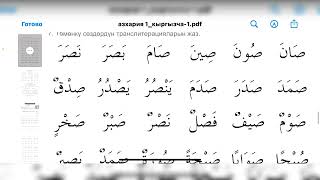 Готово
азхария 1_кыргызча-1.pdf
төмөнкү сөздөрдүн транслитерацияларын жаз.
صَانَ صُونَ صِينَ صَامَ بَصَرَ نَصَرَ
صَمَدَ صَدَرَ صَدَمَ يَنْصُرُ يَصْدُرُ صِدْقٌ
صَوْمٌ صَيْفٌ فَصْلٌ نَصْرٌ صَبْرٌ صَخْرٌ
صُبْحًا صَوَابًا